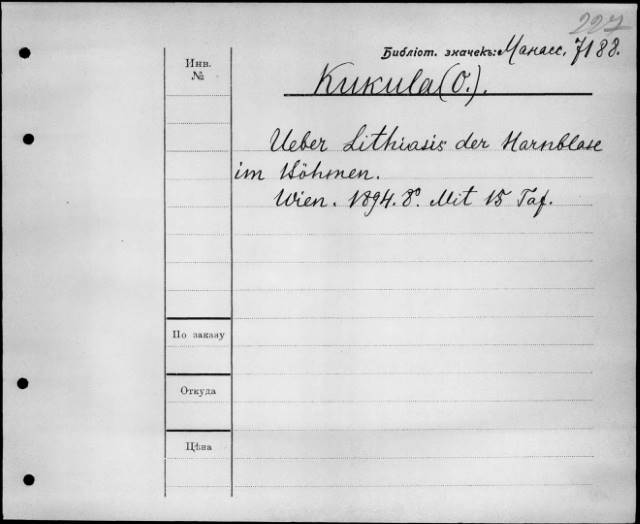 227
Библіот. значекъ: Манасс. 7188.
Инв.
№
Kukula (O.).
Ueber Lithiasis der Harnblase
im Böhmen.
Wien. 1894. 8°. Mit 15 Taf.
По заказу
Откуда
Цѣна